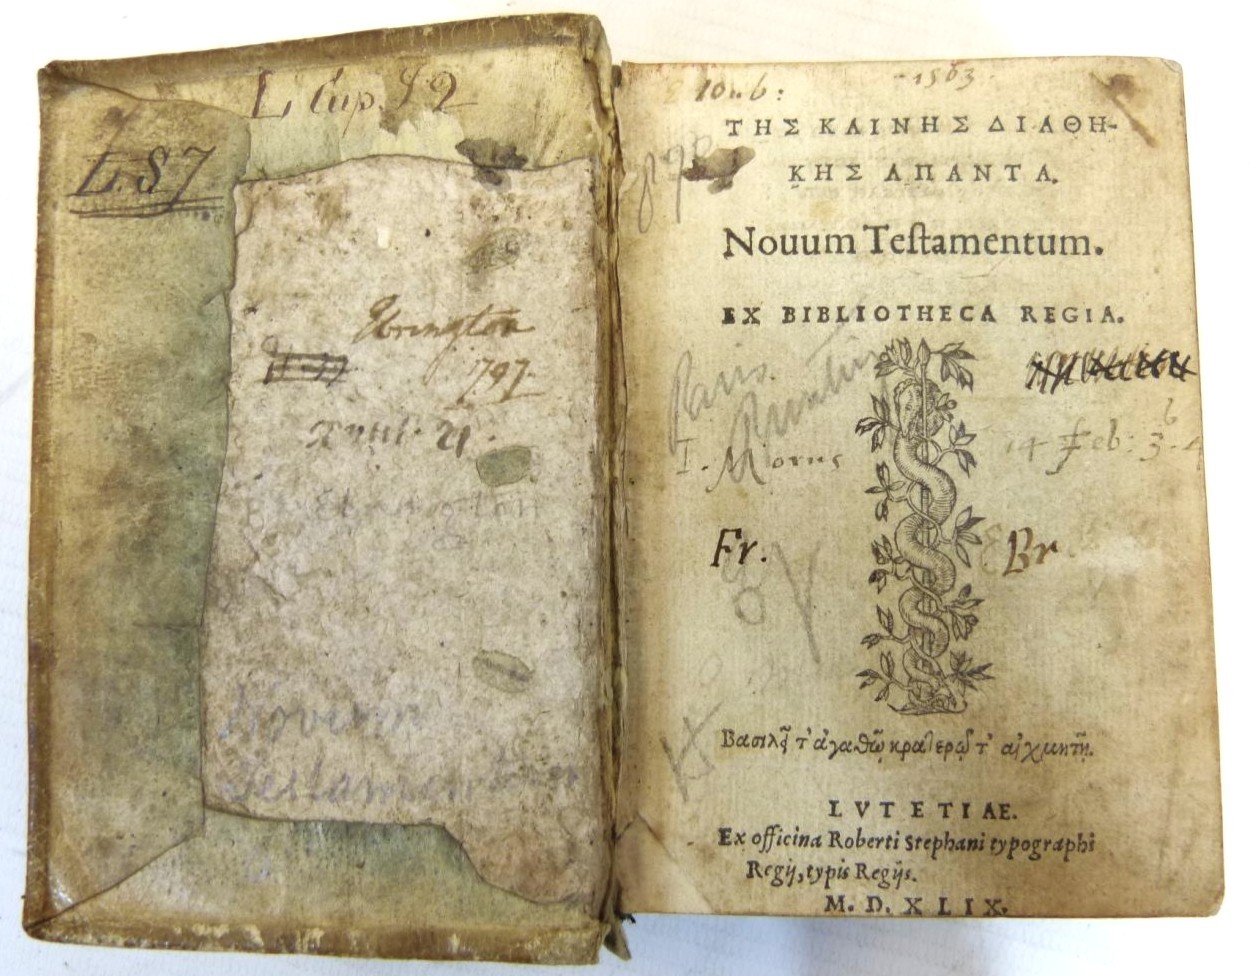 L Cup. S 2
L. S 7
Ebrington
797.
Ebrington
Novum
Testamentum
1563.
ΤΗΣ ΚΑΙΝΗΣ ΔΙΑΘΗ-
ΚΗΣ ΑΠΑΝΤΑ.
Nouum Testamentum.
EX BIBLIOTHECA REGIA.
Paris.
I. Morus 14 Feb: 3
Fr. Br
Βασιλεῖ τ' ἀγαθῷ κρατερῷ τ' αἰχμητῇ.
LVTETIAE.
Ex officina Roberti Stephani typographi
Regij, typis Regijs.
M. D. XLIX.